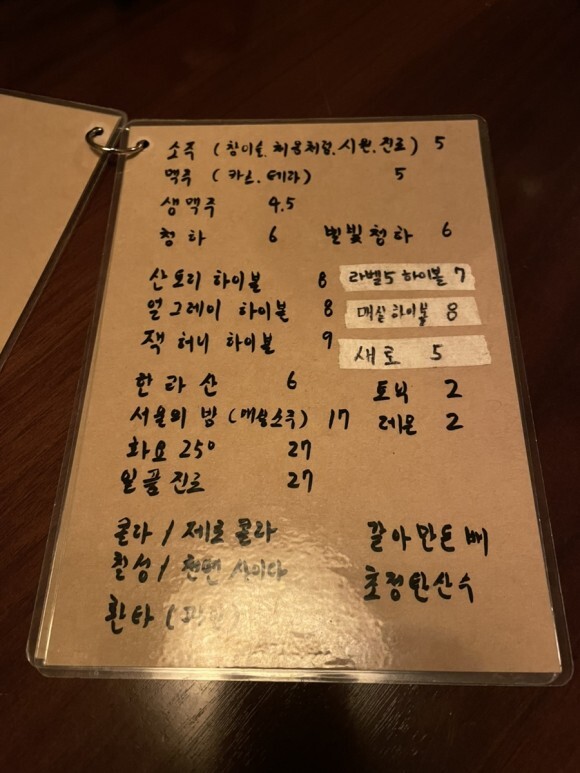 소주 (참이슬, 처음처럼, 시원, 진로) 5
맥주 (카스, 테라) 5
생맥주 4.5
청하 6 별빛청하 6
산토리 하이볼 8 라벨5 하이볼 7
얼그레이 하이볼 8 매실하이볼 8
잭 허니 하이볼 9 새로 5
한라산 6 토닉 2
서울의 밤 (매실소주) 17 레몬 2
화요 25° 27
일품진로 27
콜라 / 제로 콜라 갈아만든 배
칠성 / 사이다 초정탄산수
환타 (